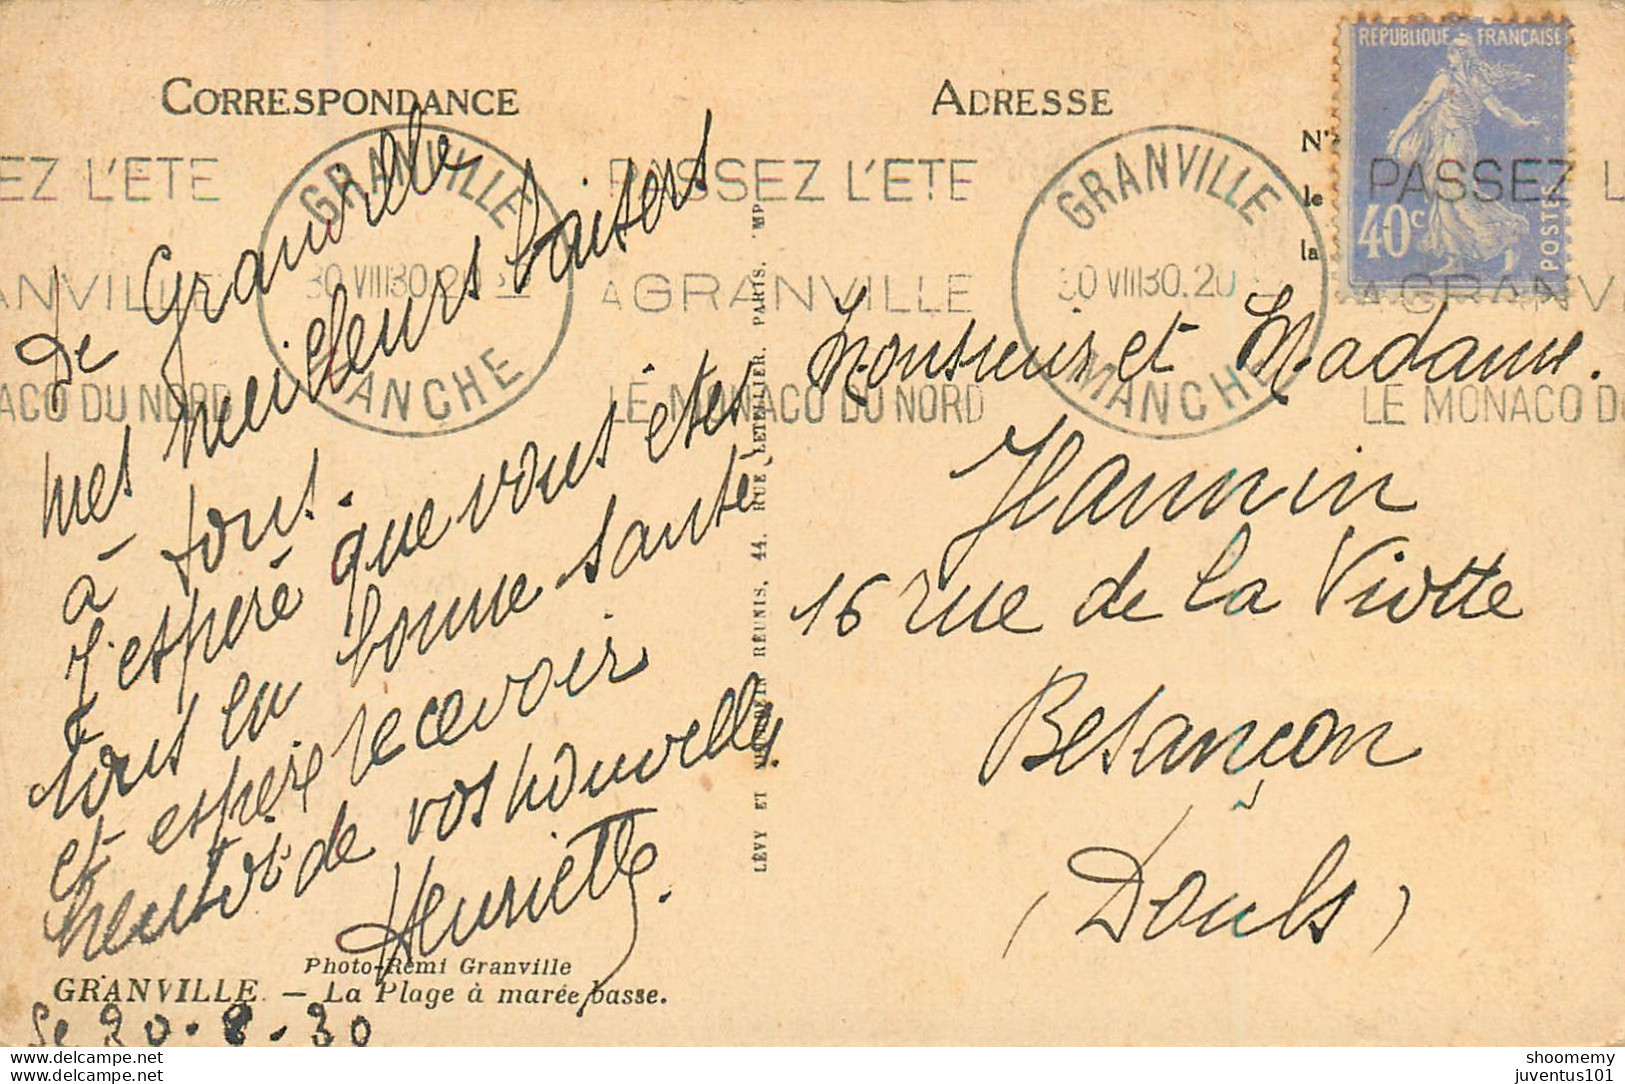 CORRESPONDANCE
ADRESSE
REPUBLIQUE FRANÇAISE
40c
POSTES
N°
le
la
EZ L'ETE
ANVILLE
ACO DU NORD
GRANVILLE
30 VIII 30. 20
MANCHE
PASSEZ L'ETE
A GRANVILLE
LE MONACO DU NORD
GRANVILLE
30 VIII 30. 20
MANCHE
PASSEZ L
A GRANV
LE MONACO D
De Granville
mes meilleurs baisers
à tous.
J'espère que vous êtes
tous en bonne santé
et espère recevoir
de vos nouvelles.
Henriette.
Monsieur et Madame.
Hannin
16 rue de la Viotte
Besançon
(Doubs)
LÉVY ET NEURDEIN RÉUNIS. 44. RUE LETELLIER. PARIS. MP
Photo-Rémi Granville
GRANVILLE. — La Plage à marée basse.
Le 30.8.30
www.delcampe.net
www.delcampe.net
shoomemy
juventus101